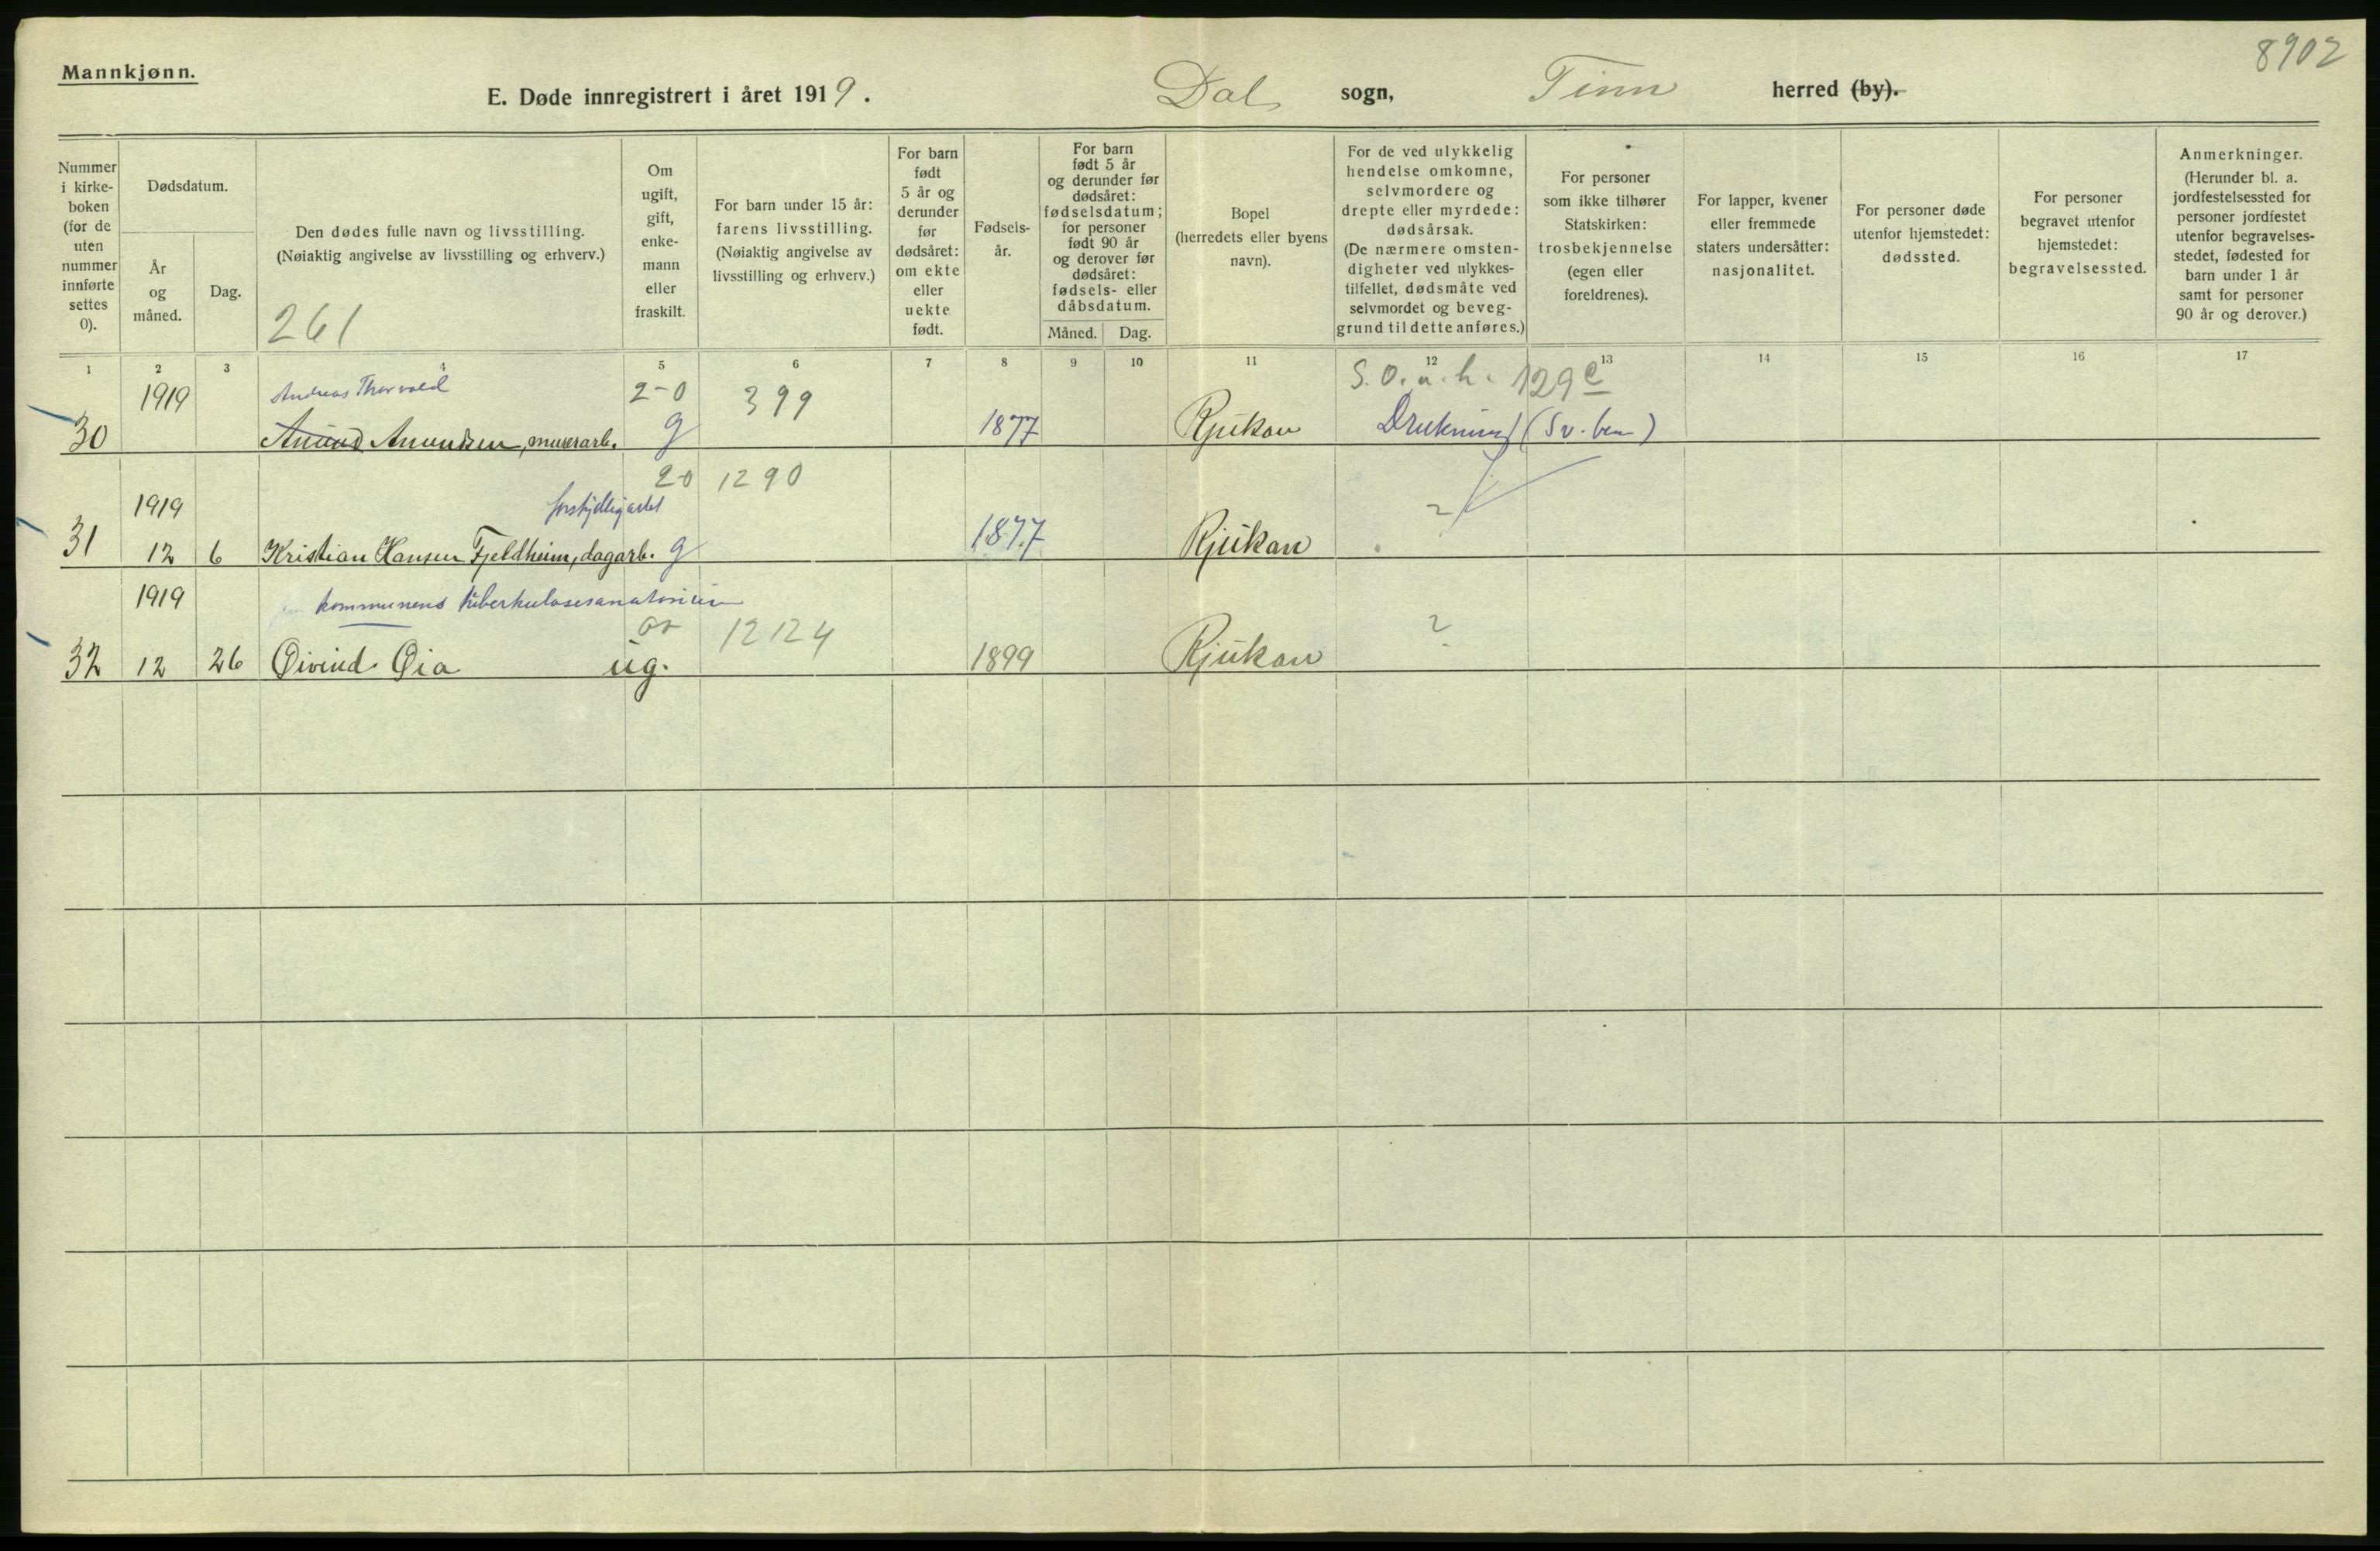 8902
Mannkjønn.
E. Døde innregistrert i året 1919. Dal sogn, Tinn herred (by).
Nummer i kirke- boken (for de uten nummer innførte settes 0).
Dødsdatum.
År og måned.
Dag.
Den dødes fulle navn og livsstilling.
(Nøiaktig angivelse av livsstilling og erhverv.)
261
Om ugift, gift, enke- mann eller fraskilt.
For barn under 15 år: farens livsstilling. (Nøiaktig angivelse av livsstilling og erhverv.)
For barn født 5 år og derunder før dødsåret: om ekte eller uekte født.
Fødsels- år.
For barn født 5 år og derunder før dødsåret: fødselsdatum; for personer født 90 år og derover før dødsåret: fødsels- eller dåbsdatum.
Måned. Dag.
Bopel (herredets eller byens navn).
For de ved ulykkelig hendelse omkomne, selvmordere og drepte eller myrdede: dødsårsak. (De nærmere omsten- digheter ved ulykkes- tilfellet, dødsmåte ved selvmordet og beveg- grund til dette anføres.)
For personer som ikke tilhører Statskirken: trosbekjennelse (egen eller foreldrenes).
For lapper, kvener eller fremmede staters undersåtter: nasjonalitet.
For personer døde utenfor hjemstedet: dødssted.
For personer begravet utenfor hjemstedet: begravelsessted.
Anmerkninger. (Herunder bl. a. jordfestelsessted for personer jordfestet utenfor begravelses- stedet, fødested for barn under 1 år samt for personer 90 år og derover.)
1 2 3 4 5 6 7 8 9 10 11 12 13 14 15 16 17
1919 Andreas Thorvald 2-0 399 S. O. u. h. 129 e
30 Amund Amundsen, murerarb. g 1877 Rjukan Drukning (Sv. ben)
20 1290
1919 forskjellig arbei
31 12 6 Kristian Hansen Fjeldheim, dagarb. g 1877 Rjukan ?
1919 kommunens tuberkulosesanatorium
or 12124 ?
32 12 26 Øivind Øia ug. 1899 Rjukan